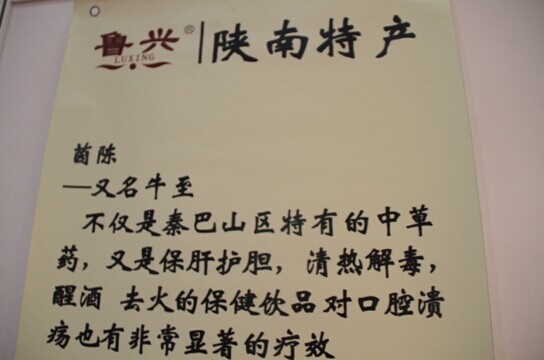 鲁兴® | 陕南特产
LUXING
茵陈
—又名牛至
不仅是秦巴山区特有的中草
药，又是保肝护胆，清热解毒，
醒酒 去火的保健饮品对口腔溃
疡也有非常显著的疗效